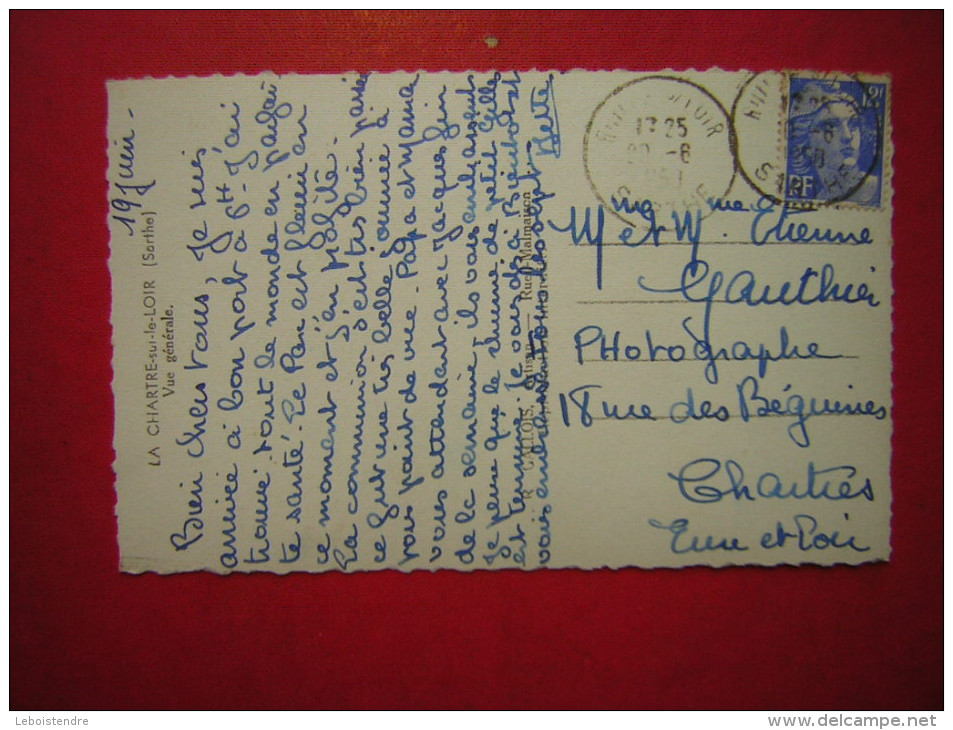 LA CHARTRE-sur-le-LOIR (Sarthe)
Vue générale.
19 Juin -
Bien chers tous, Je suis
arrivée à bon port à 6H. J'ai
trouvé tout le monde en parfai
te santé. Le Parc est fleuri en
ce moment et j'en profite.
La communion s'est très bien passée
ce fut une très belle journée à
tous point de vue. Papa et Mama
vous attendent avec Jacques fin
de la semaine, ils vous embrassent
Je pense que le rhume de petit Gilles
est terminé. Je vous dis à Bientôt et
vous embrasse tous les sept.
R. GALLOIS, Rueil-Malmaison
12F
RF
17 25
20 -6
SARTHE
Mr et Mme Etienne
Gauthier
PHotographe
18 rue des Béguines
Chartres
Eure et Loir
Leboistendre
www.delcampe.net